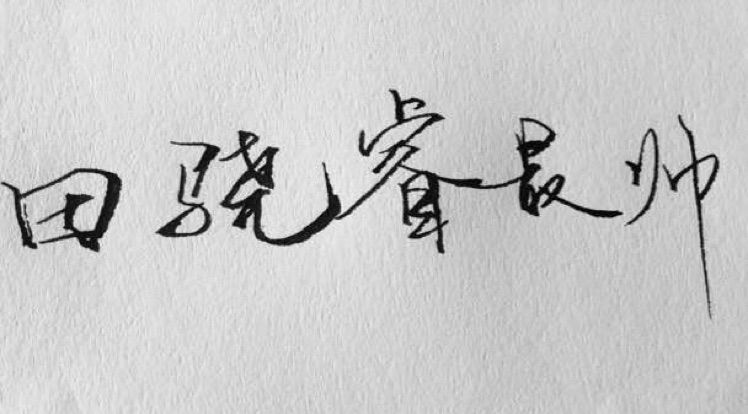 田骁睿最帅